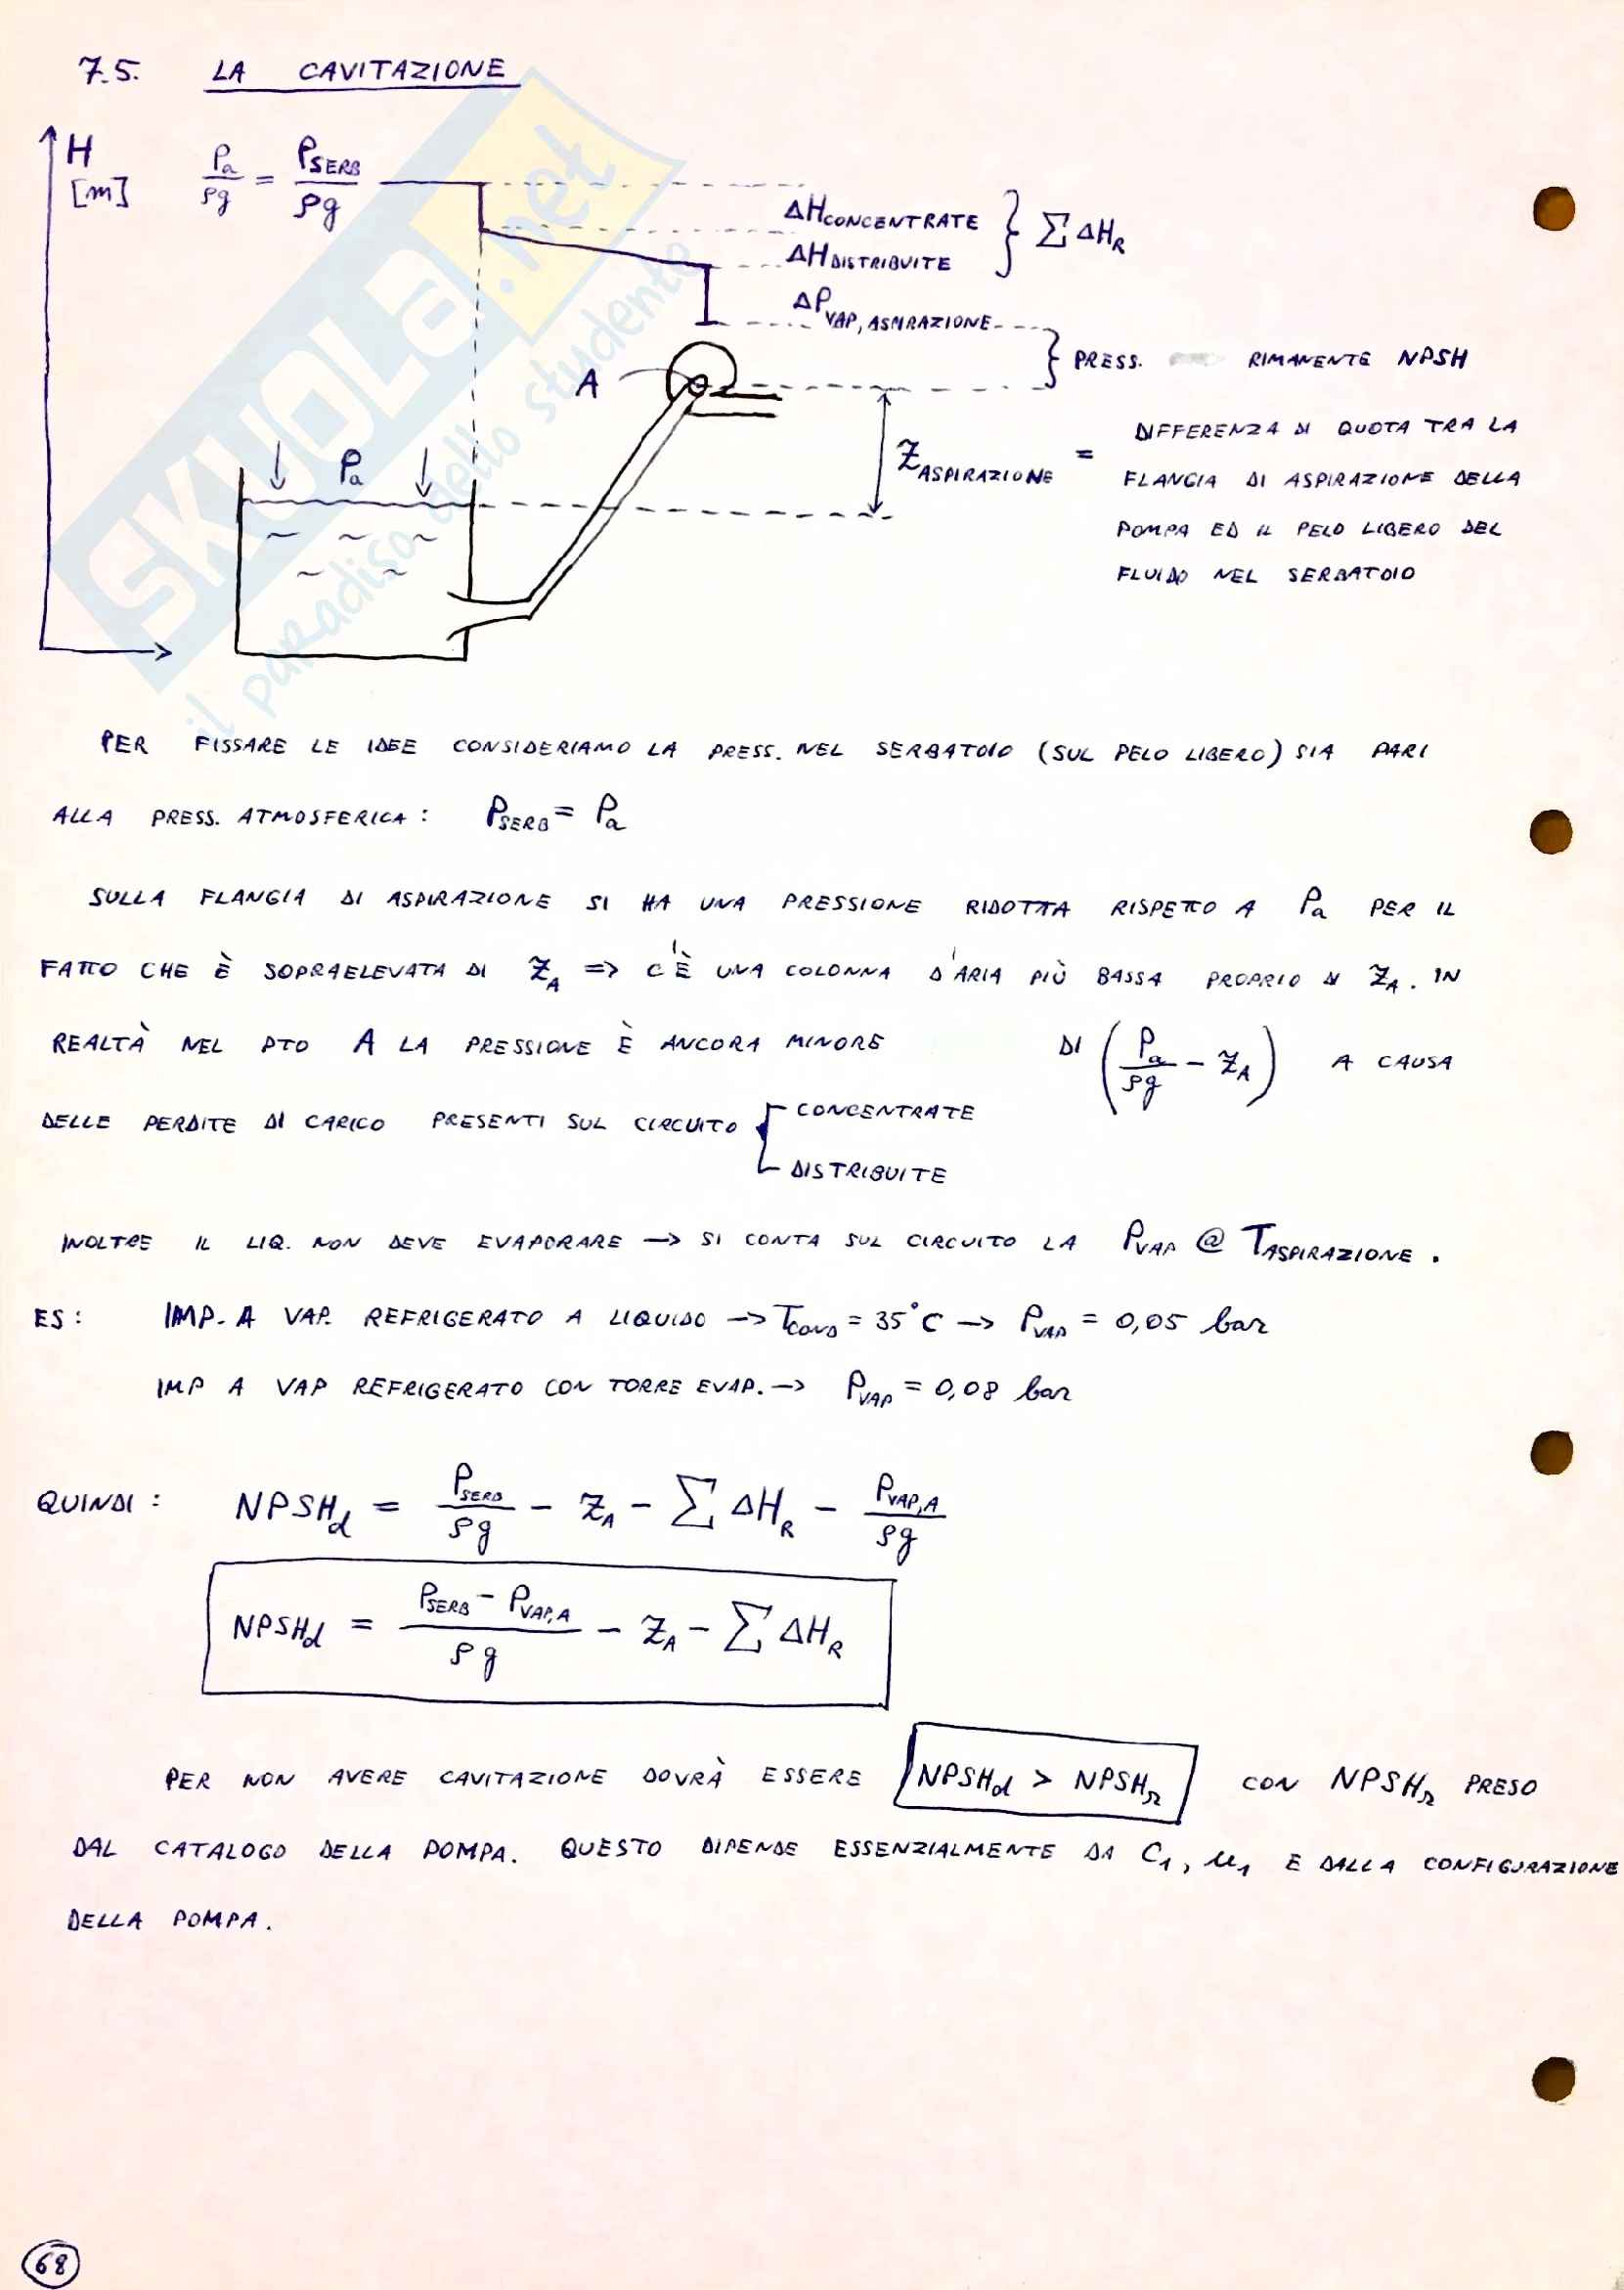 7.5. LA CAVITAZIONE
H
[m]
Pa/ρg = PSERB/ρg
ΔHCONCENTRATE
ΔHDISTRIBUITE
} ∑ ΔHR
ΔPVAP, ASPIRAZIONE
} PRESS. RIMANENTE NPSH
A
Pa
ZASPIRAZIONE = DIFFERENZA DI QUOTA TRA LA
FLANGIA DI ASPIRAZIONE DELLA
POMPA ED IL PELO LIBERO DEL
FLUIDO NEL SERBATOIO
PER FISSARE LE IDEE CONSIDERIAMO LA PRESS. NEL SERBATOIO (SUL PELO LIBERO) SIA PARI
ALLA PRESS. ATMOSFERICA: PSERB = Pa
SULLA FLANGIA DI ASPIRAZIONE SI HA UNA PRESSIONE RIDOTTA RISPETTO A Pa PER IL
FATTO CHE È SOPRAELEVATA DI ZA => C'È UNA COLONNA D'ARIA PIÙ BASSA PROPRIO DI ZA. IN
REALTÀ NEL PTO A LA PRESSIONE È ANCORA MINORE DI (Pa/ρg - ZA) A CAUSA
DELLE PERDITE DI CARICO PRESENTI SUL CIRCUITO { CONCENTRATE
DISTRIBUITE
INOLTRE IL LIQ. NON DEVE EVAPORARE → SI CONTA SUL CIRCUITO LA PVAP @ TASPIRAZIONE.
ES: IMP. A VAP. REFRIGERATO A LIQUIDO → TCOND = 35°C → PVAP = 0,05 bar
IMP A VAP REFRIGERATO CON TORRE EVAP. → PVAP = 0,08 bar
QUINDI: NPSHd = PSERB/ρg - ZA - ∑ ΔHR - PVAP,A/ρg
NPSHd = (PSERB - PVAP,A)/ρg - ZA - ∑ ΔHR
PER NON AVERE CAVITAZIONE DOVRÀ ESSERE NPSHd > NPSHr CON NPSHr PRESO
DAL CATALOGO DELLA POMPA. QUESTO DIPENDE ESSENZIALMENTE DA C1, u1 E DALLA CONFIGURAZIONE
DELLA POMPA.
68
SKUOLA.net
il paradiso dello studente